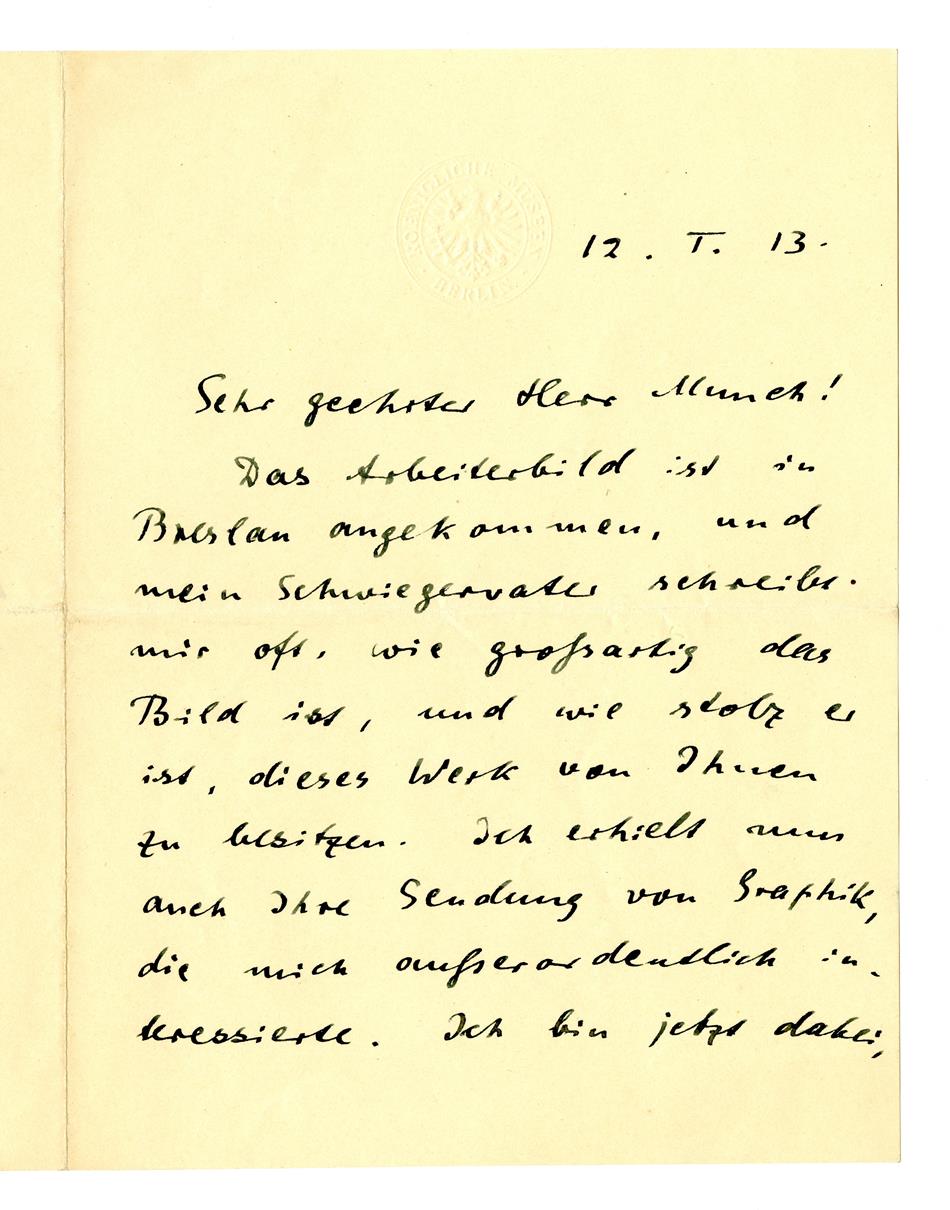 KOENIGLICHE MUSEEN
· BERLIN ·
12. I. 13.
Sehr geehrter Herr Munch!
Das Arbeiterbild ist in
Breslau angekommen, und
mein Schwiegervater schreibt
mir oft, wie großartig das
Bild ist, und wie stolz er
ist, dieses Werk von Ihnen
zu besitzen. Ich erhielt nun
auch Ihre Sendung von Graphik,
die mich außerordentlich in-
teressierte. Ich bin jetzt dabei,